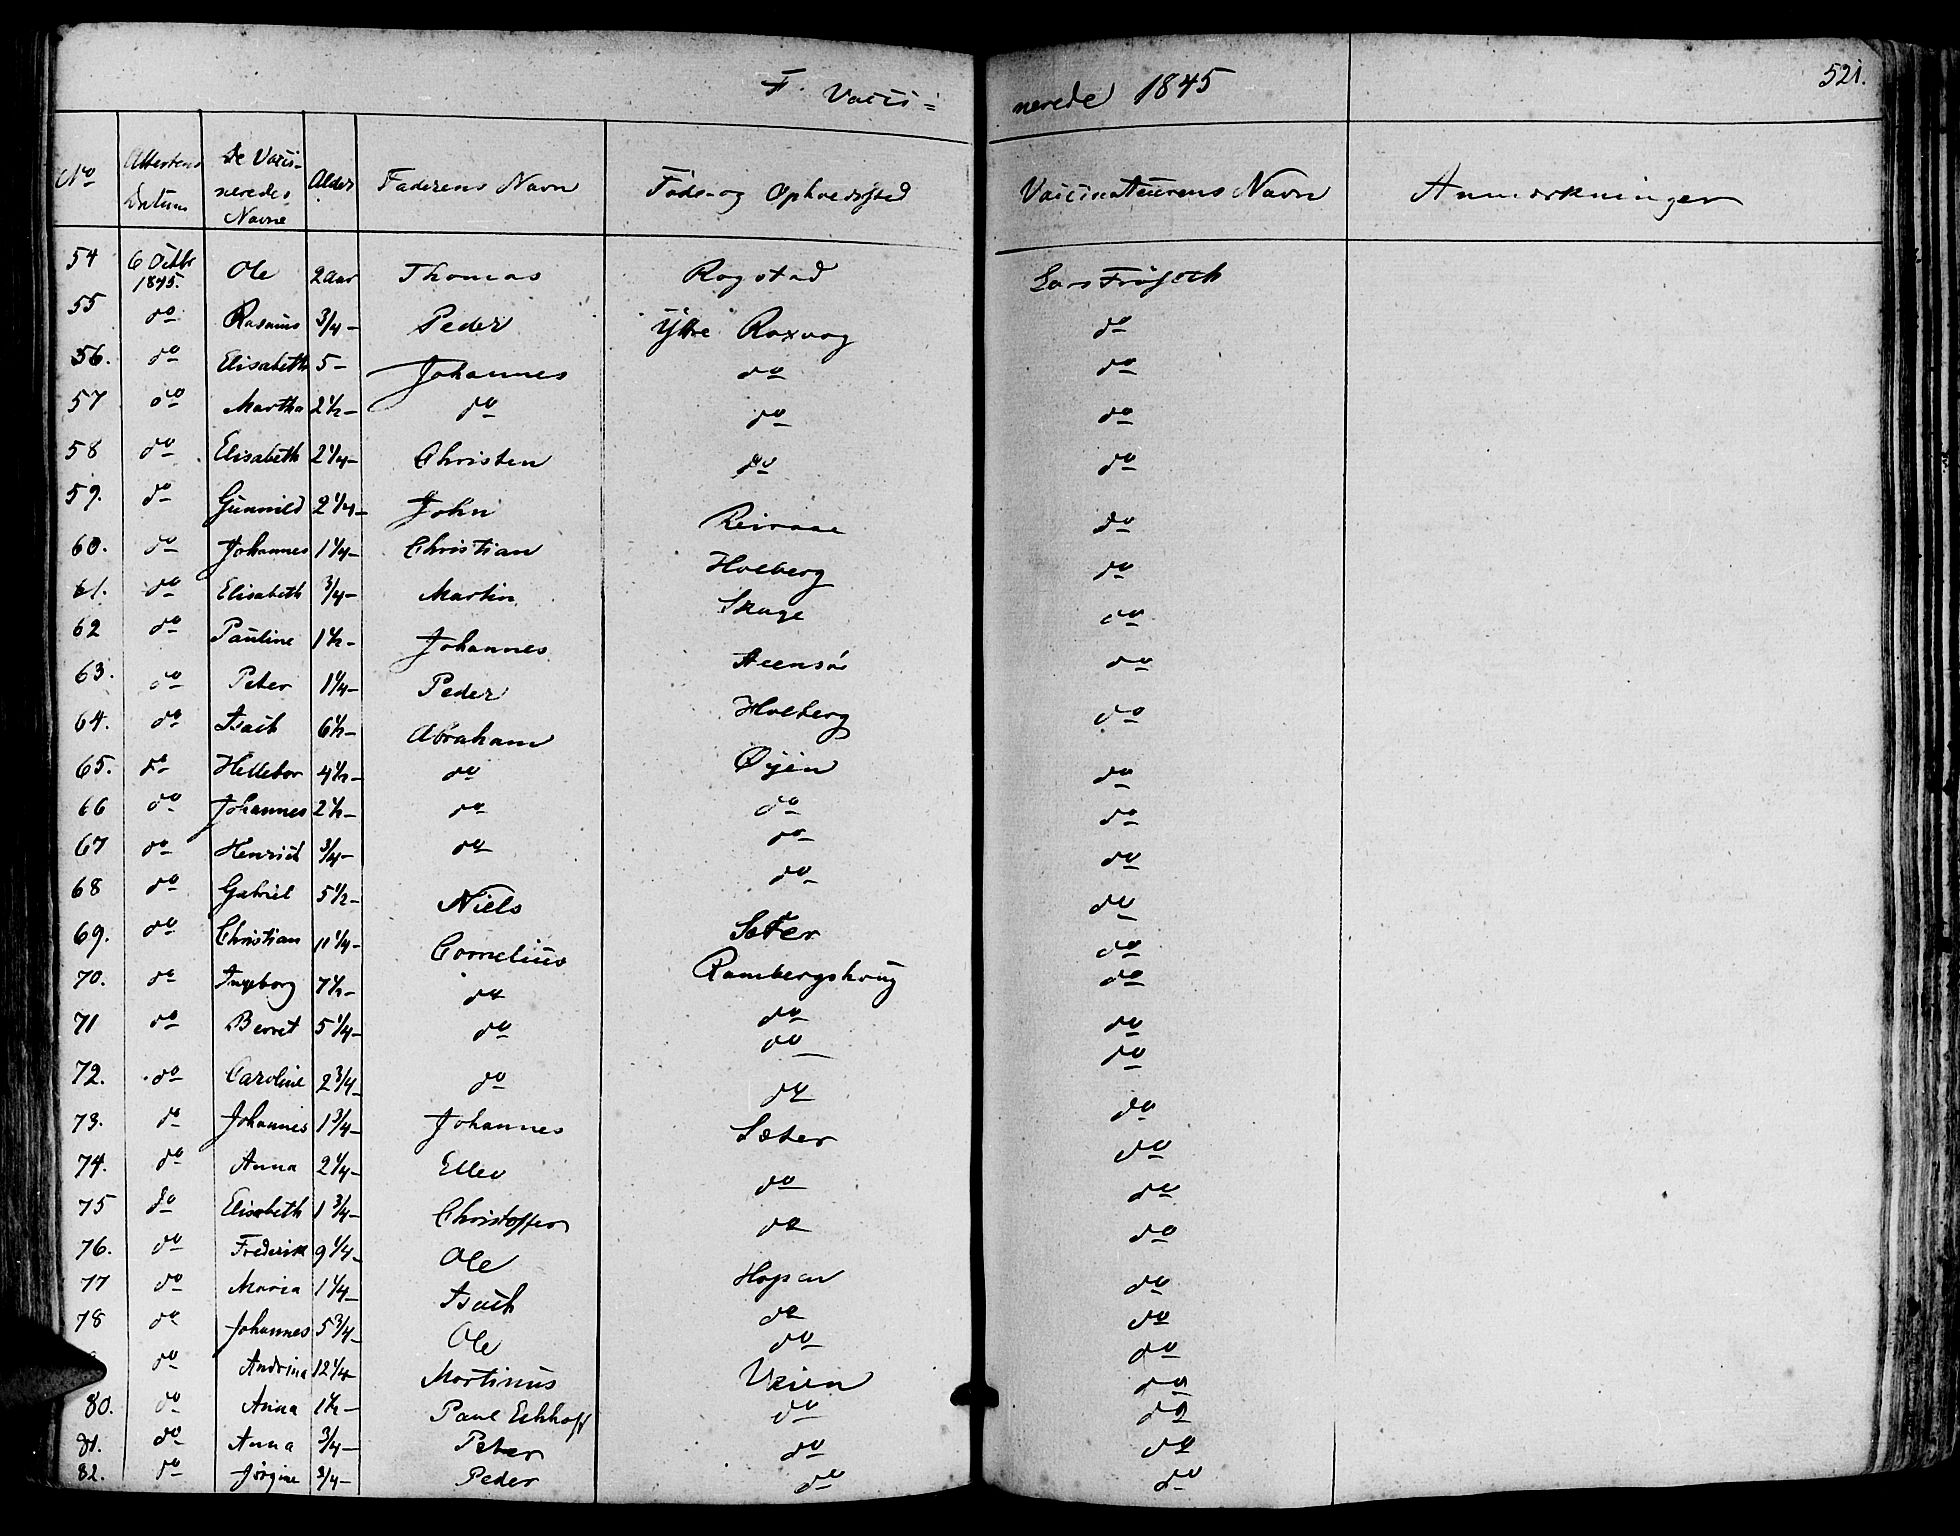 F. Vacci=
nerede 1845
521.
No Attestens Datum De Vacci-neredes Navne Alder Faderens Navn Føde-og Ophoedssted Vaccinateurens Navn Anmærkninger
54 6 Octbr 1845. Ole 2 Aar Thomas Rogstad Lars Frøseth
55 do Rasmus 3/4 - Peder Ytre Roxvog do
56. do Elisabeth 5 - Johannes do do
57 do Martha 2 1/2 - do do do
58 do Elisabeth 2 1/4 - Christen do do
59. do Gunnild 2 1/4 - John do
60. do Johannes 1 1/4 - Christian Holberg do
61. do Elisabeth 3/4 - Martin Skage do
62 do Pauline 1 1/2 - Johannes do
63. do Peter 1 1/4 - Peder Holberg do
64. do Isach 6 1/2 - Abraham Øyen do
65. do Hellebor 4 1/2 - do do do
66 do Johannes 2 1/2 - do do do
67 do Henrich 3/4 - do do do
68 do Gabriel 5 1/2 - Niels Sæter do
69. do Christian 11 1/4 - Cornelius Rambergshoug do
70. do Ingeborg 7 1/2 - do do do
71 do Berret 5 1/4 - do do do
72. do Caroline 2 3/4 - do do do
73. do Johannes 1 3/4 - Johannes Sæter do
74. do Anna 2 1/4 - Ellev do do
75 do Elisabeth 1 3/4 - Christoffer do do
76. do Frederik 9 1/4 - Ole Hopen do
77 do Maria 1 1/4 - Isach do do
78 do Johannes 5 3/4 - Ole do do
do Andrina 12 1/4 - Martinus Veien do
80. do Anna 1 1/2 - Paul Eckhoff do do
81. do Anna 3/4 - Peter do do
82. do Jørgine 3/4 - Peder do do